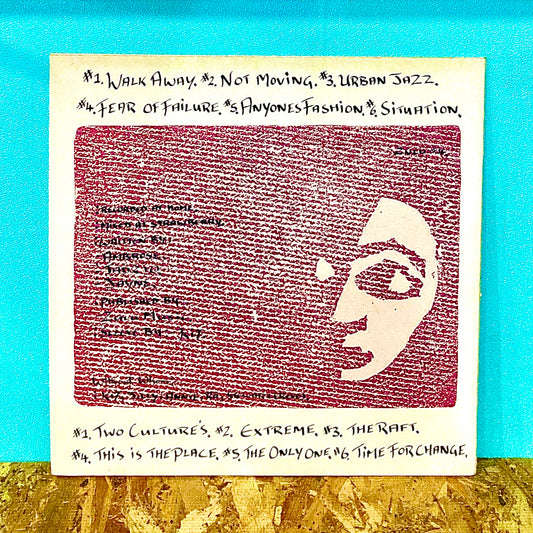 #1. WALK AWAY. #2. NOT MOVING. #3. URBAN JAZZ.
#4. FEAR OF FAILURE. #5. ANYONES FASHION. #6. SITUATION.
RECORDED AT HOME
MIXED AT
WRITTEN BY
PUBLISHED BY
SLEEVE BY KIT
#1. TWO CULTURE'S. #2. EXTREME. #3. THE RAFT.
#4. THIS IS THE PLACE. #5. THE ONLY ONE. #6 TIME FOR CHANGE.